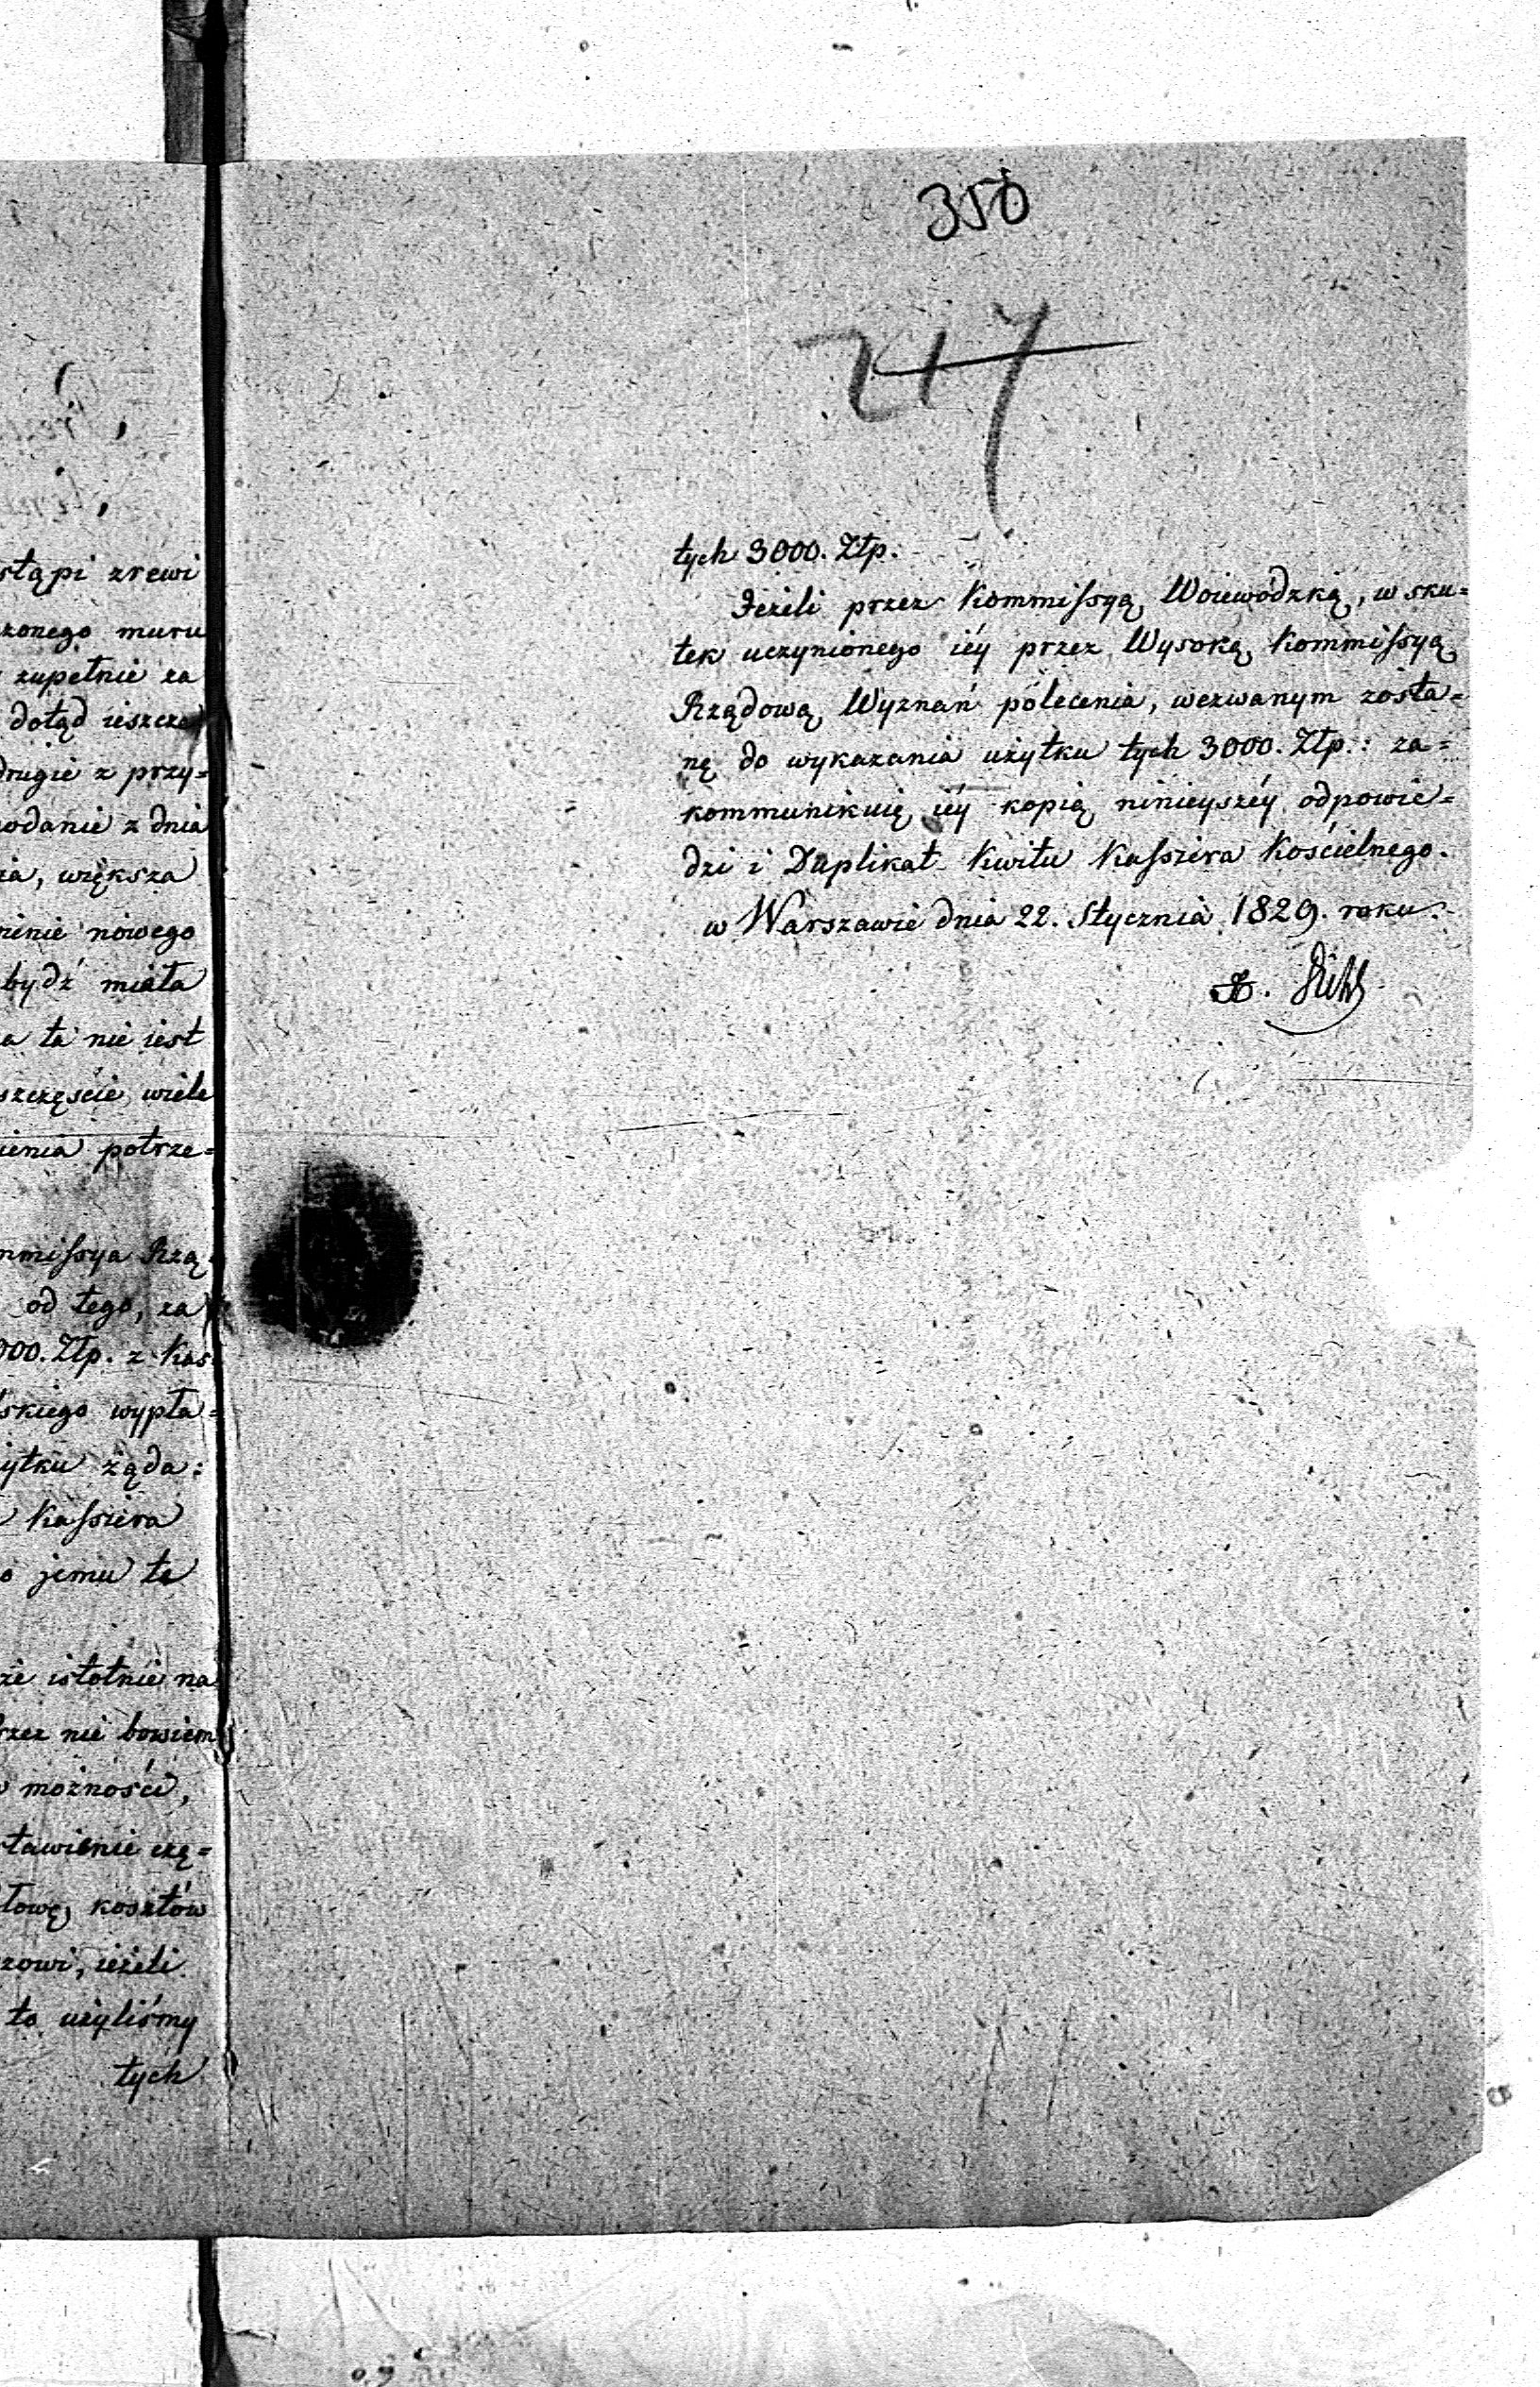 stąpi zrewi
zonego muru
zupełnie za
dotąd ieszcze
drugie z przy=
podanie z dnia
ia, większa
nienie nowego
bydź miała
a ta nie iest
szczęście, wiele
ienia potrze=
mmissya Rzą=
od tego, za
000. Złp. z Kas
skiego wypła=
ytku żąda:
Kassiera
o jemu te
że istotnie na
przez nie bowiem
możności,
stawienie czę=
łowę kosztów
zowi, ieżeli
to użyliśmy
tych
350
217
tych 3000. Złp.
Jeżeli przez Kommissyą Woiewódzką, w sku=
tek uczynionego iéy przez Wysoką Kommissyą
Rządową Wyznań polecenia, wezwanym zosta=
nę do wykazania użytku tych 3000. Złp.: za=
kommunikuię iéy kopią ninieyszéy odpowie=
dzi i Duplikat Kwitu Kassiera Kościelnego.
w Warszawie dnia 22. Stycznia 1829. roku.